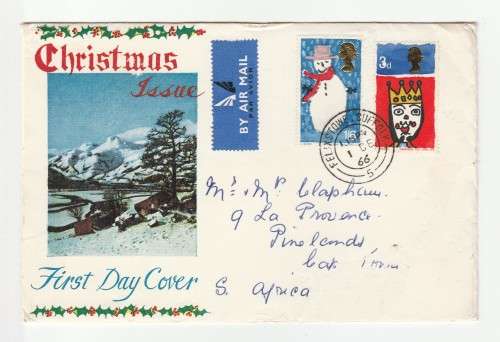 Christmas
Issue
BY AIR MAIL
PAR AVION
1/6
3d
FELIXSTOWE SUFFOLK
1 DE
66
5
Mr & Mrs Clapham.
9 La Provence.
Pinelands
S. Africa
First Day Cover